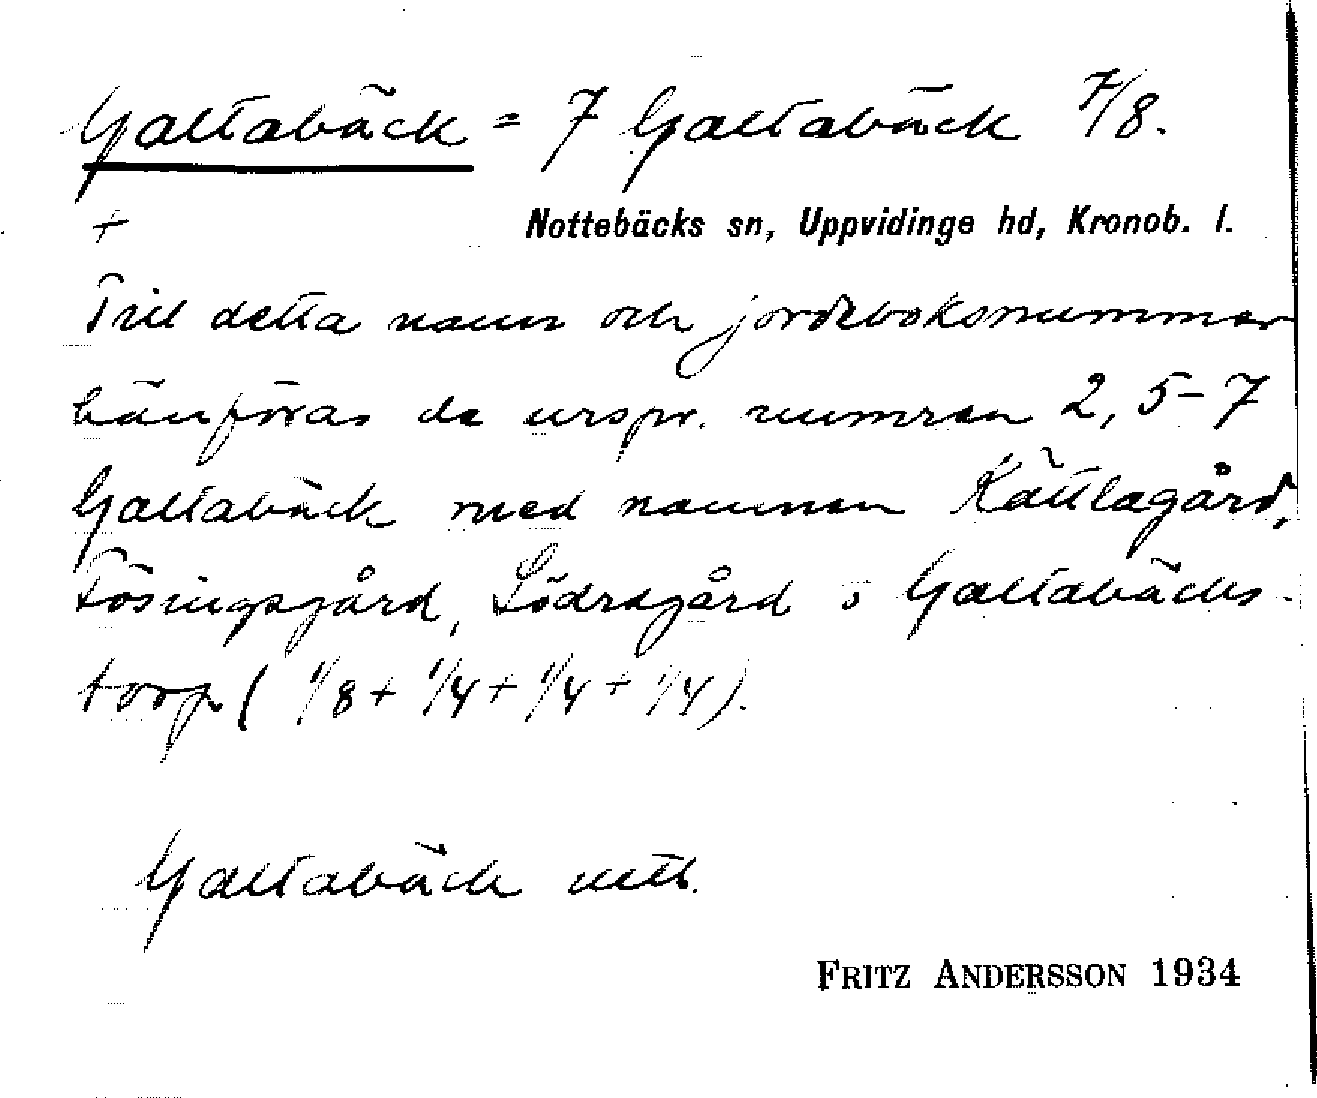 Galtabäck = 7 Galtabäck 7/8.
+
Nottebäcks sn, Uppvidinge hd, Kronob. l.
Till detta namn och jordeboksnummer
hänföras de urspr. numren 2, 5-7
Galtabäck med namnen Kättlagård,
Fösingsgård, Södragård o Galtabäcks-
torp ( 1/8 + 1/4 + 1/4 + 1/4).
Galtabäck
FRITZ ANDERSSON 1934